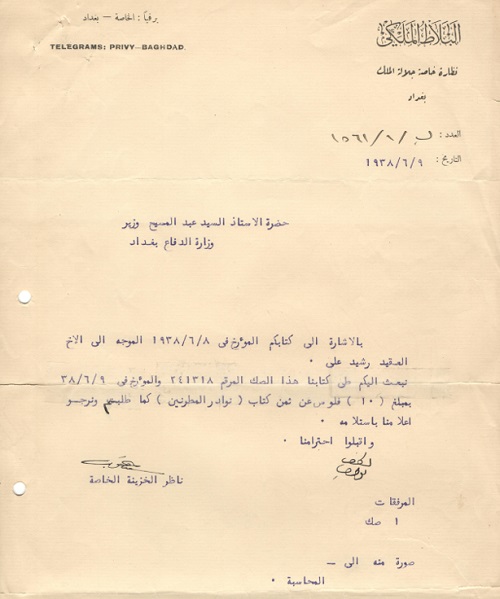 برقياً : الخاصة — بغداد
TELEGRAMS: PRIVY—BAGHDAD.
البلاط الملكي
نظارة خاصة جلالة الملك
بغداد
العدد : ب / ٩ / ١٥٦١
التاريخ : ١٩٣٨/٦/٩
حضرة الاستاذ السيد عبد المسيح وزير
وزارة الدفاع بغداد
بالاشارة الى كتابكم المؤرخ فى ١٩٣٨/٦/٨ الموجه الى الاخ
العقيد رشيد على ٠
نبعث اليكم طى كتابنا هذا الصك المرقم ٢٤١٣١٨ والمؤرخ فى ٣٨/٦/٩
بمبلغ ( ١٠ ) فلوس عن ثمن كتاب ( نوادر المطربين ) كما طلبتم ونرجو
اعلامنا باستلامه ٠
واقبلوا احترامنا ٠
ناظر الخزينة الخاصة
المرفقات
١ صك
صورة منه الى —
المحاسبة ٠